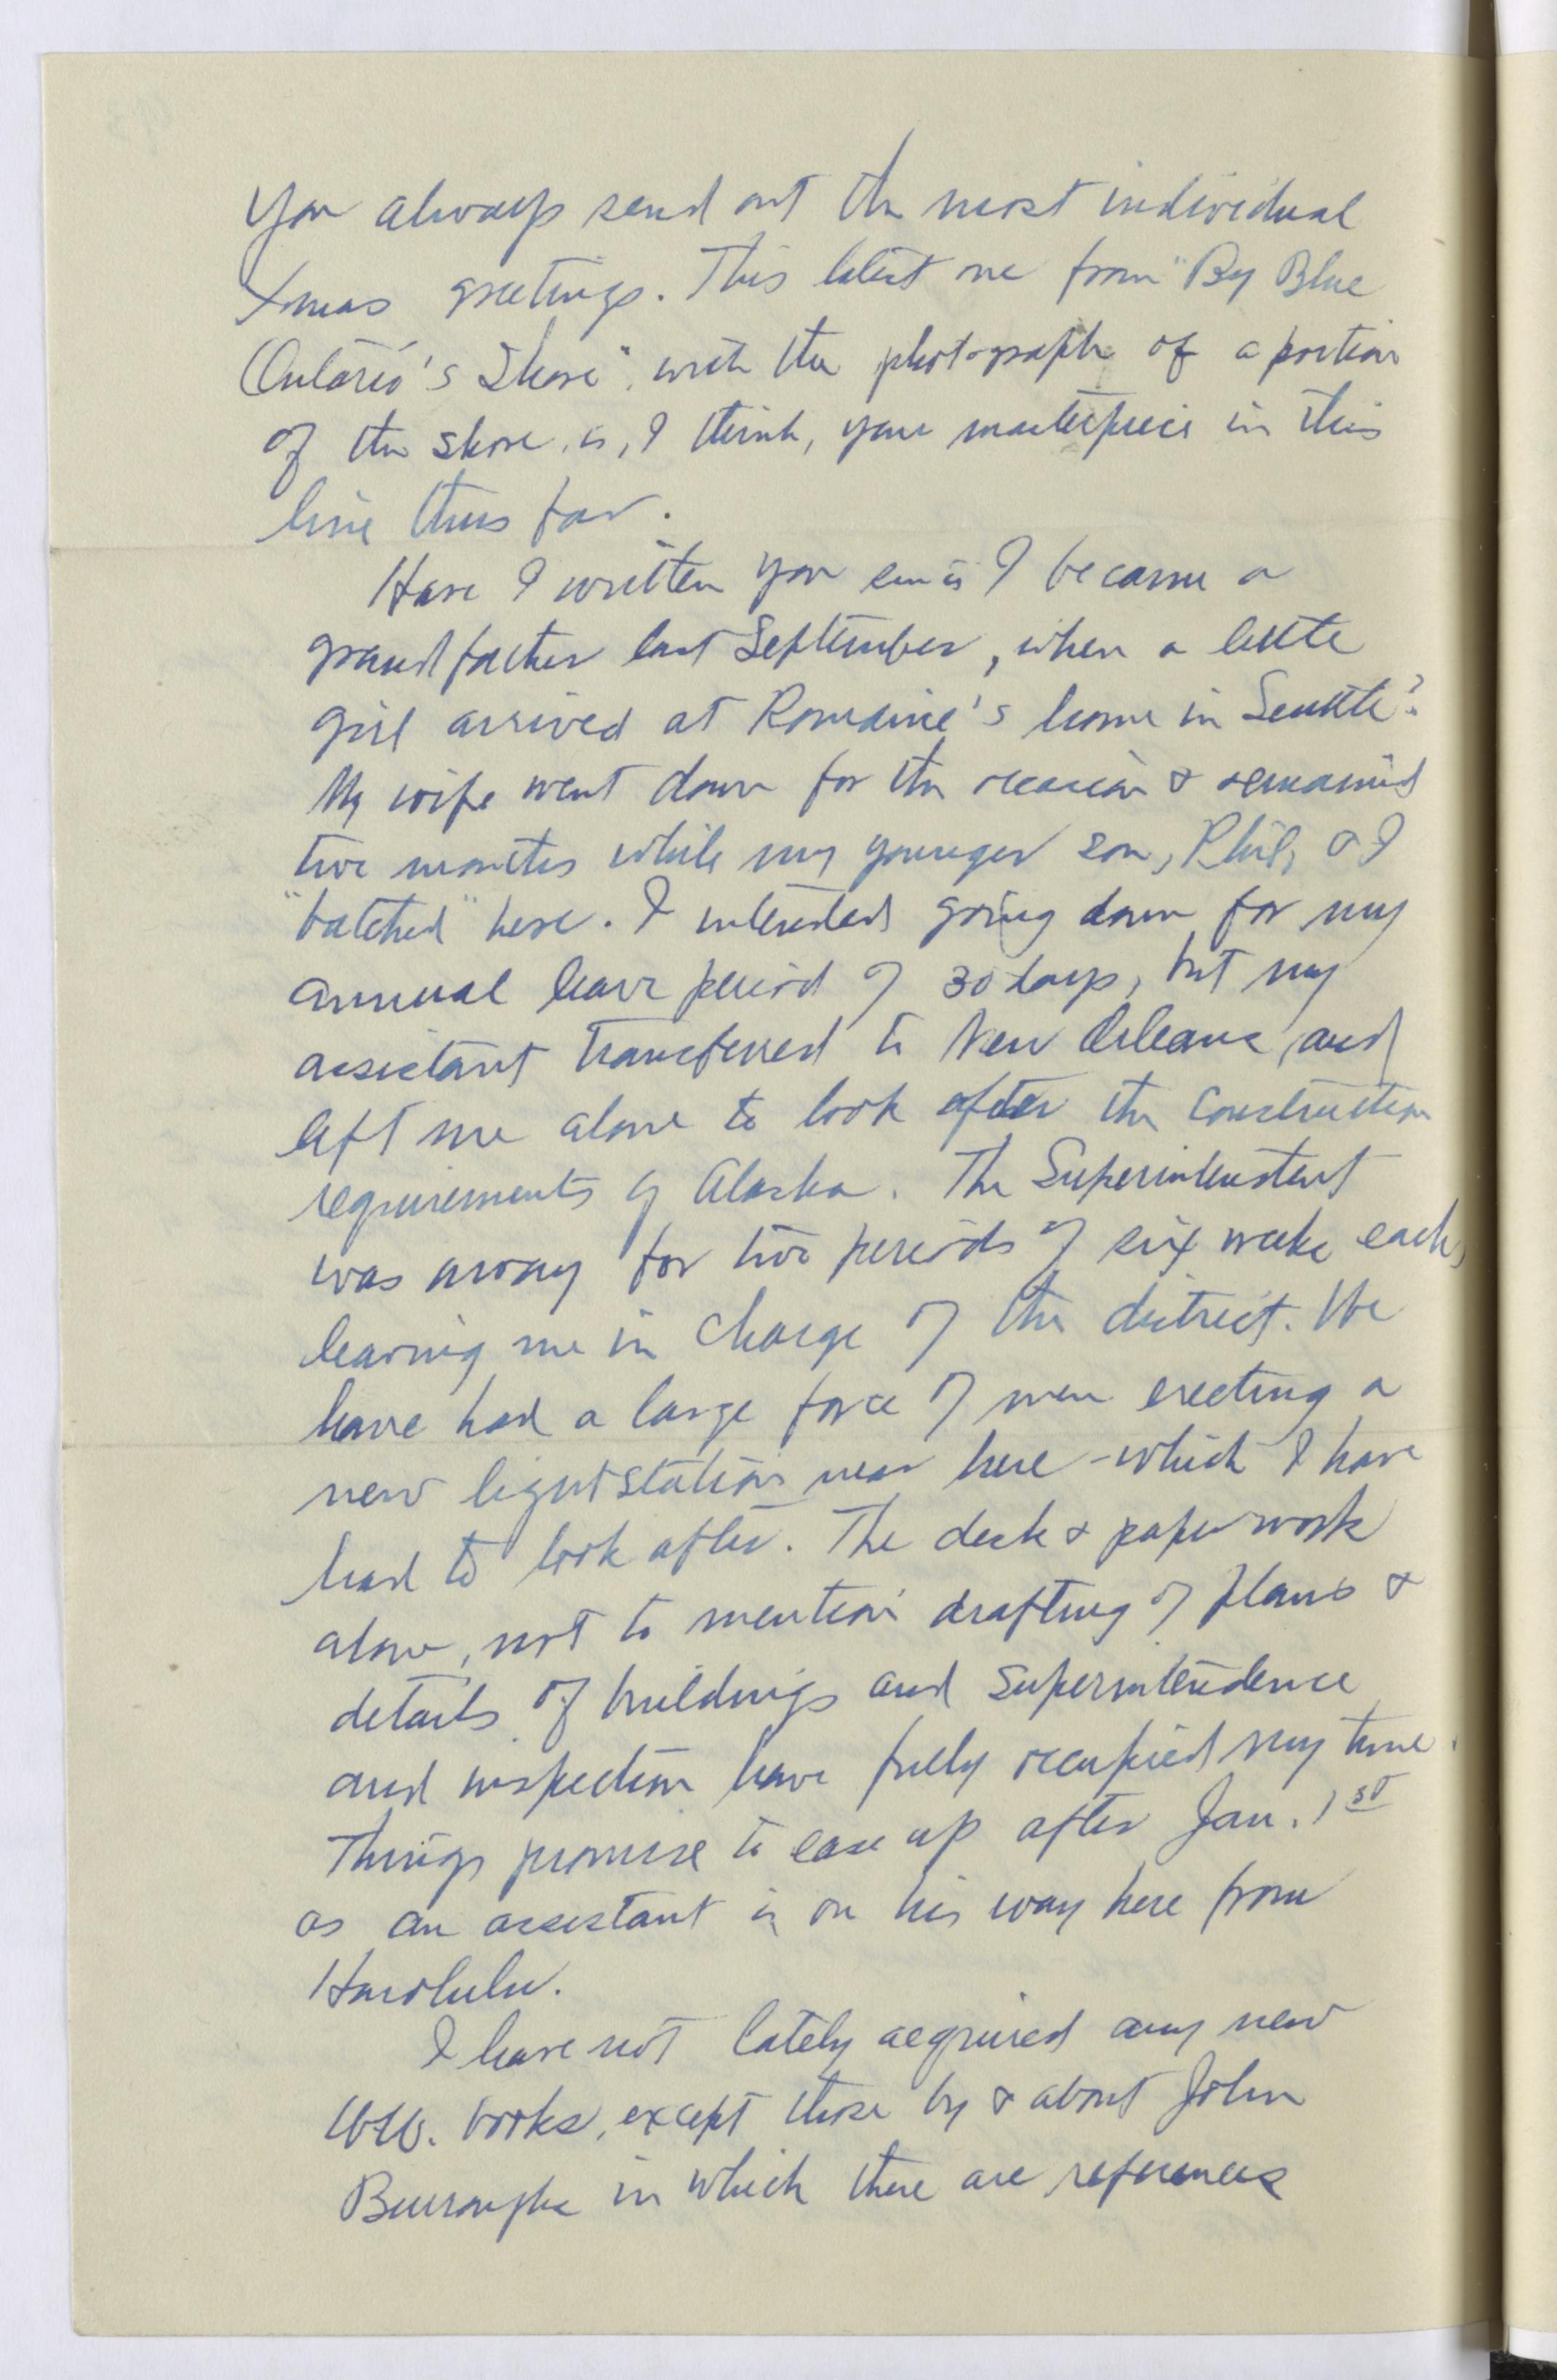 You always send out the most individual
Xmas greetings. This latest one from "By Blue
Ontario's Shore", with the photograph of a portion
of the shore, is, I think, your masterpiece in this
line thus far.
Have I written you since I became a
grandfather last September, when a little
girl arrived at Romaine's home in Seattle?
My wife went down for the occasion & remained
two months while my younger son, Phil, & I
"batched" here. I intended going down for my
annual leave period of 30 days, but my
assistant transferred to New Orleans and
left me alone to look after the construction
requirements of Alaska. The Superintendent
was away for two periods of six weeks each,
leaving me in charge of the district. We
have had a large force of men erecting a
new light station near here - which I have
had to look after. The desk & paper work
alone, not to mention drafting of plans &
details of buildings and superintendence
and inspection have fully occupied my time.
Things promise to ease up after Jan. 1st
as an assistant is on his way here from
Honolulu.
I have not lately acquired any new
W.W. books, except those by & about John
Burroughs in which there are references